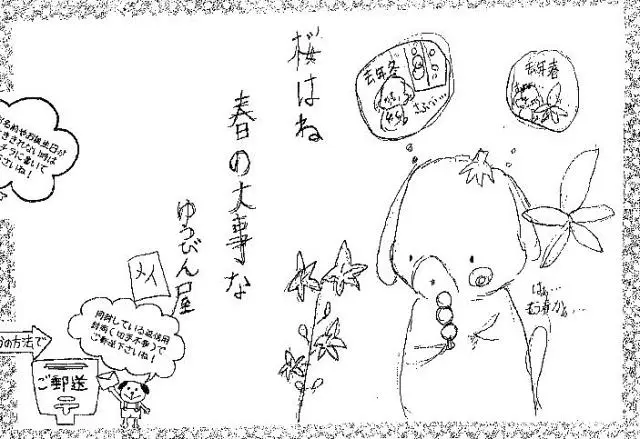 桜はね
春の大事な
ゆうびん屋
メイ
去年冬
去年春
はぁ…
もう春かぁ…
お誕生日が
ききれない時は
チラに書いて
さいね!
の方法で
ご郵送
〒
同封している返信用
封筒(切手不要)で
ご郵送下さいね!